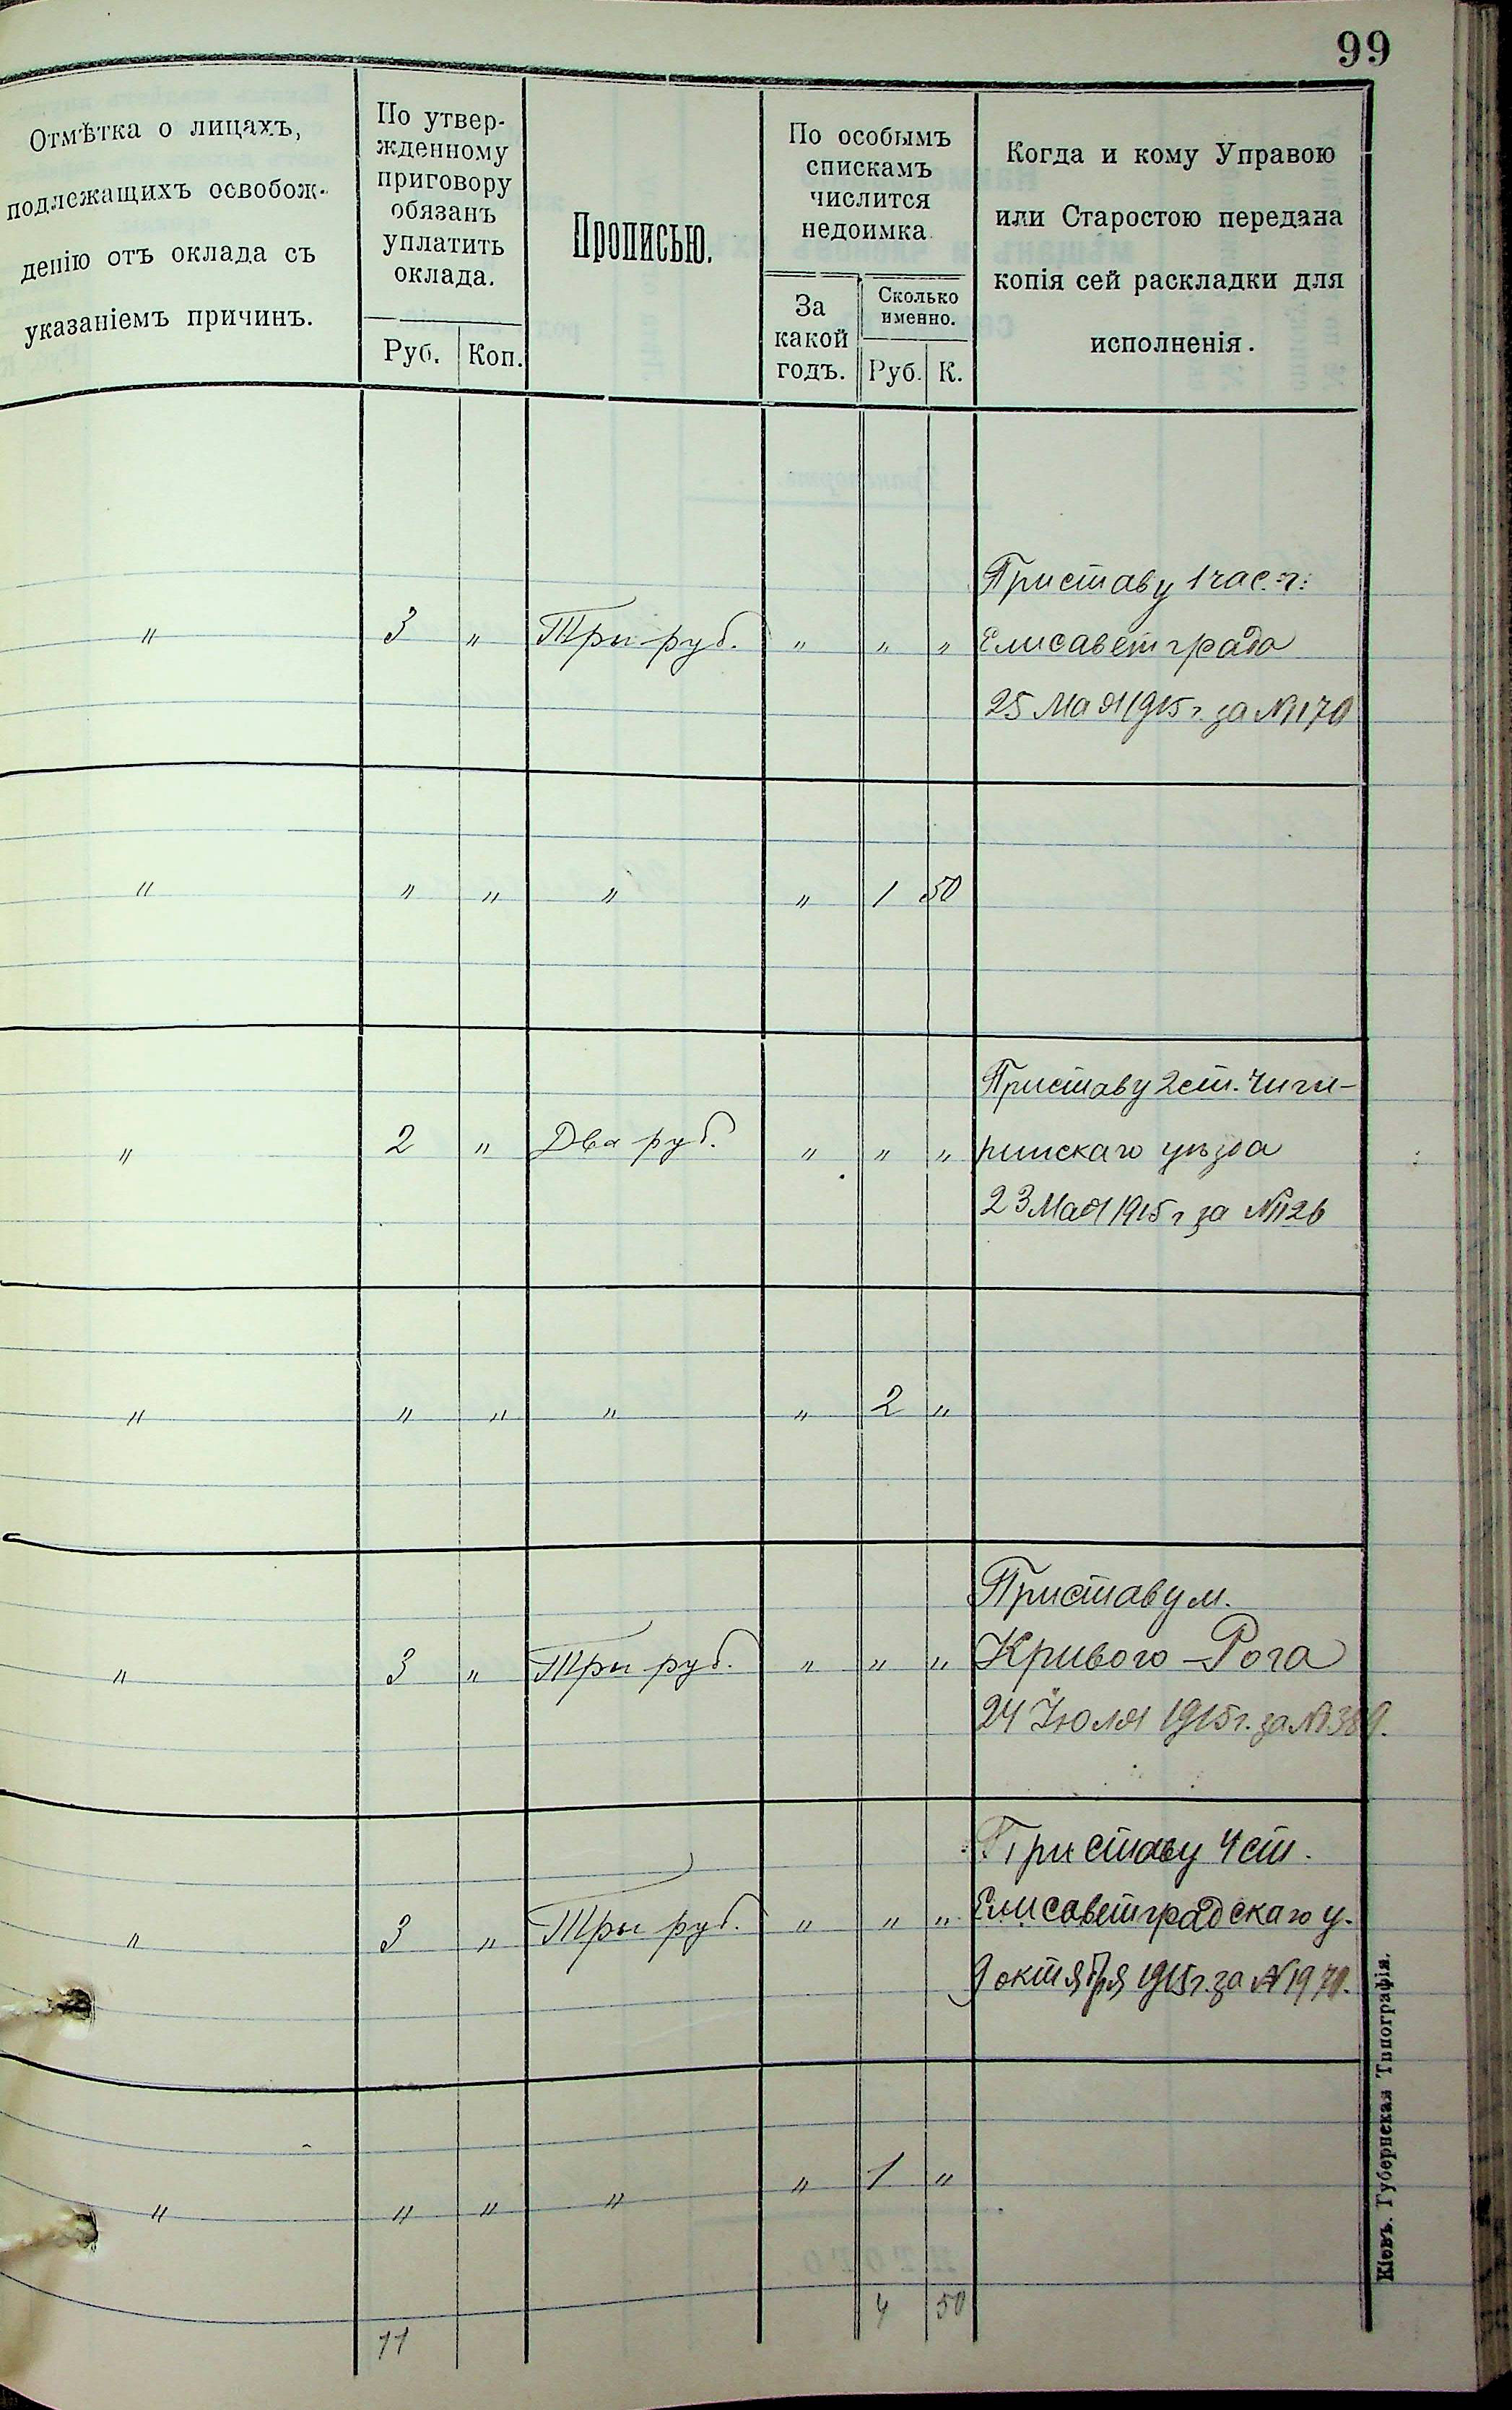 99
Отмѣтка о лицахъ,
подлежащихъ освобож-
денію отъ оклада съ
указаніемъ причинъ.
По утвер-
жденному
приговору
обязанъ
уплатить
оклада.
Руб. Коп.
Прописью.
По особымъ
спискамъ
числится
недоимка
За
какой
годъ.
Сколько
именно.
Руб. К.
Когда и кому Управою
или Старостою передана
копія сей раскладки для
исполненія.
Приставу 1 час. г.
" 3 " Три руб. " " " Елисаветграда
25 Мая 1915 г. за № 170
" " " " " 1 50
Приставу 2 ст. Чиги-
" 2 " Два руб. " " " ринскаго уѣзда
23 Мая 1915 г за № 126
" " " " " 2 "
Приставу м.
" 3 " Три руб. " " " Кривого-Рога
24 Іюля 1915 г. за № 389.
Приставу 4 ст.
" 3 " Три руб. " " " Елисаветградскаго у.
9 октября 1915 г. за № 1970.
" " " " " 1 "
11 4 50
Кіевъ. Губернская Типографія.